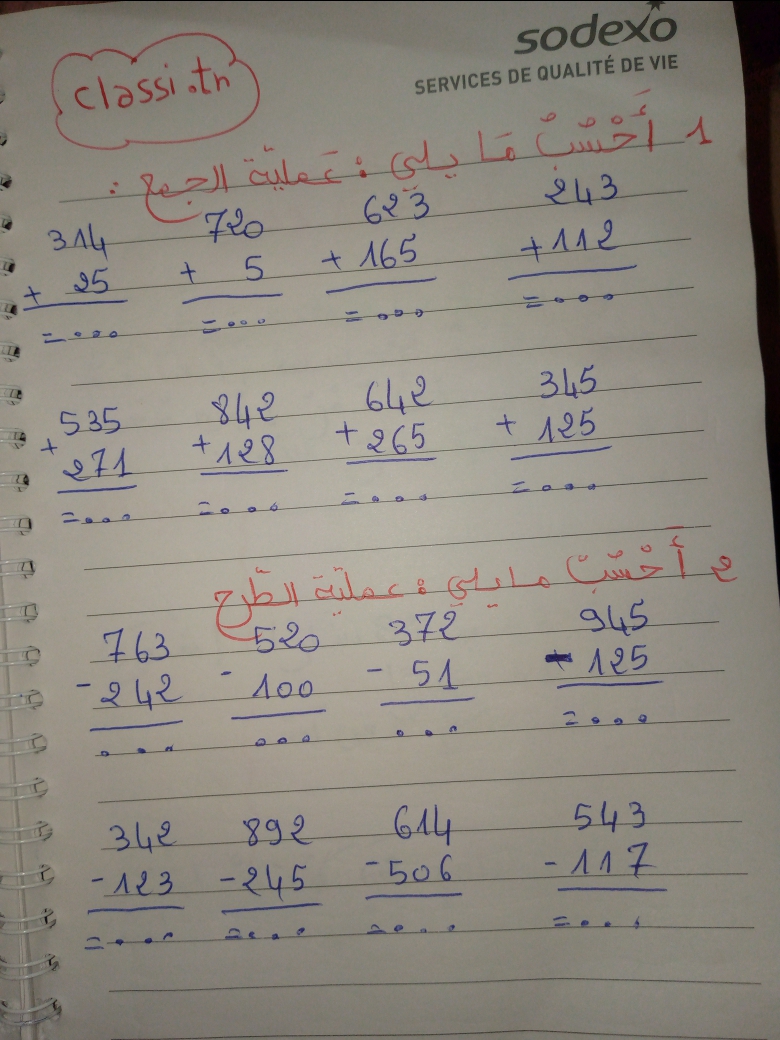 sodexo
SERVICES DE QUALITÉ DE VIE
classi.tn
1 أَحْسُبُ مَا يلي : عَمليّة الجمع :
314 720 623 243
+ 25 + 5 + 165 + 112
=... =... =... =...
535 842 642 345
+ 271 + 128 + 265 + 125
=... =... =... =...
2 أَحْسُبُ ما يلي : عمليّة الطّرح
763 520 372 945
- 242 - 100 - 51 - 125
... ... ... =...
342 892 614 543
- 123 - 245 - 506 - 117
=... =... =... =...